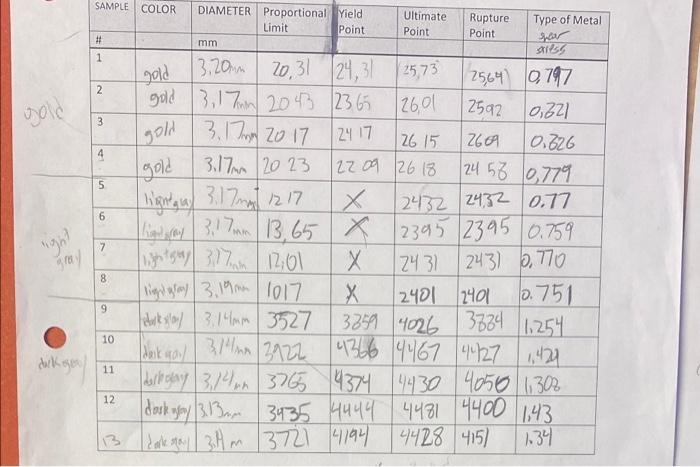 SAMPLE COLOR DIAMETER Proportional Yield Ultimate Rupture Type of Metal
# mm Limit Point Point Point stress
1 gold 3.20mm 20,31 24,31 25,73 25,64 0,797
2 gold 3,17mm 2043 23,65 26,01 2592 0,821
gold
3 gold 3.17mm 2017 2417 2615 2609 0.826
4 gold 3.17mm 2023 2209 2618 2458 0,779
5 3.17mm 1217 X 2432 24,32 0.77
6 light gray 3,17mm 13,65 X 2395 2395 0.759
light gray
7 light gray 3,17mm 12,01 X 2431 2431 0,770
8 light gray 3,19mm 1017 X 2401 2401 0.751
9 3.14mm 3527 3859 4026 3884 1,254
10 dark gray 3,14mm 3922 4366 4467 4427
dark gray
11 dark gray 3,14mm 3765 4374 4430 4050 1,308
12 dark gray 3.13mm 3935 4444 4481 4400 1,43
13 dark gray 3721 4194 4428 4151 1.34